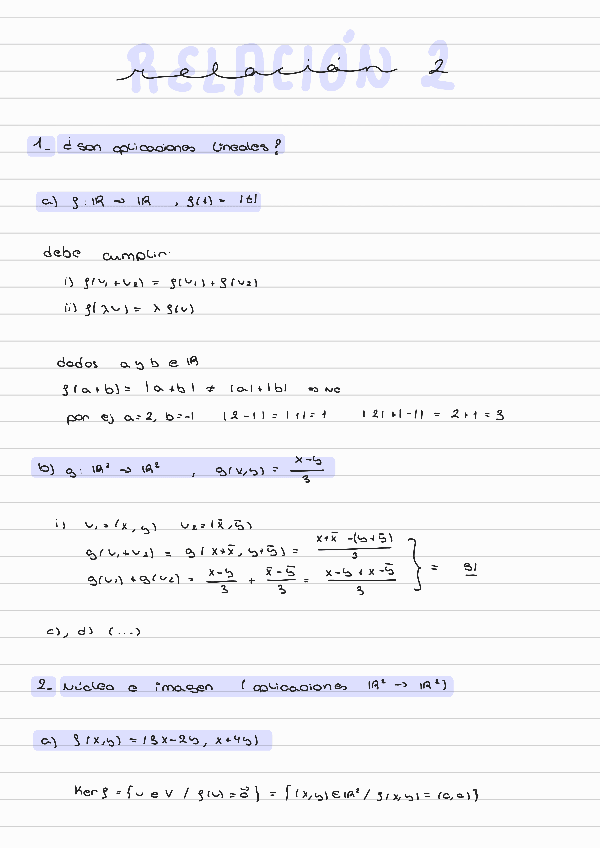 RELACIÓN 2
relación 2
1- ¿son aplicaciones lineales?
a) f: ℝ → ℝ , f(t) = |t|
debe cumplir:
i) f(v₁+v₂) = f(v₁)+f(v₂)
ii) f(λv) = λ f(v)
dados a y b ∈ ℝ
f(a+b) = |a+b| ≠ |a|+|b| ⇒ no
por ej a=2, b=-1 |2-1| = |1| = 1 |2|+|-1| = 2+1 = 3
b) g: ℝ² → ℝ² , g(x,y) = (x-y)/3
i) v₁=(x,y) v₂=(x̄,ȳ)
g(v₁+v₂) = g(x+x̄, y+ȳ) = (x+x̄ -(y+ȳ))/3
g(v₁)+g(v₂) = (x-y)/3 + (x̄-ȳ)/3 = (x-y+x̄-ȳ)/3 } = sí
c), d) (...)
2- Núcleo e imagen (aplicaciones ℝ² → ℝ²)
a) f(x,y) = (3x-2y, x+4y)
Ker f = {v ∈ V / f(v) = 0⃗} = {(x,y) ∈ ℝ² / f(x,y) = (0,0)}